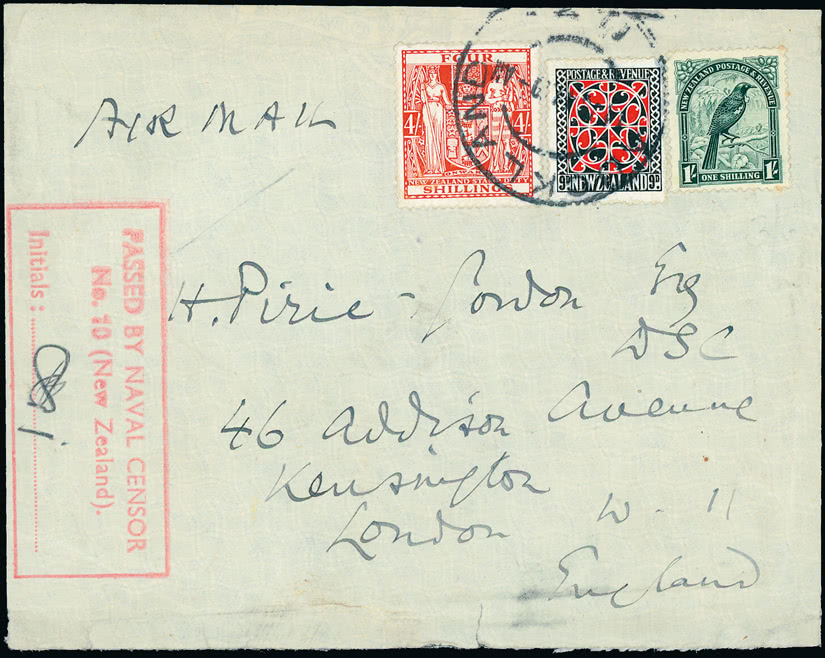 AIR MAIL
FOUR
4/- 4/-
ONWARD
NEW ZEALAND STAMP DUTY
SHILLINGS
POSTAGE & REVENUE
9D NEW ZEALAND 9D
NEW ZEALAND POSTAGE & REVENUE
1/- 1/-
ONE SHILLING
AUCKLAND
H. Pirie-Gordon Esq
DSC
46 Addison Avenue
Kensington
London W. 11
England
PASSED BY NAVAL CENSOR
No. 10 (New Zealand).
Initials :